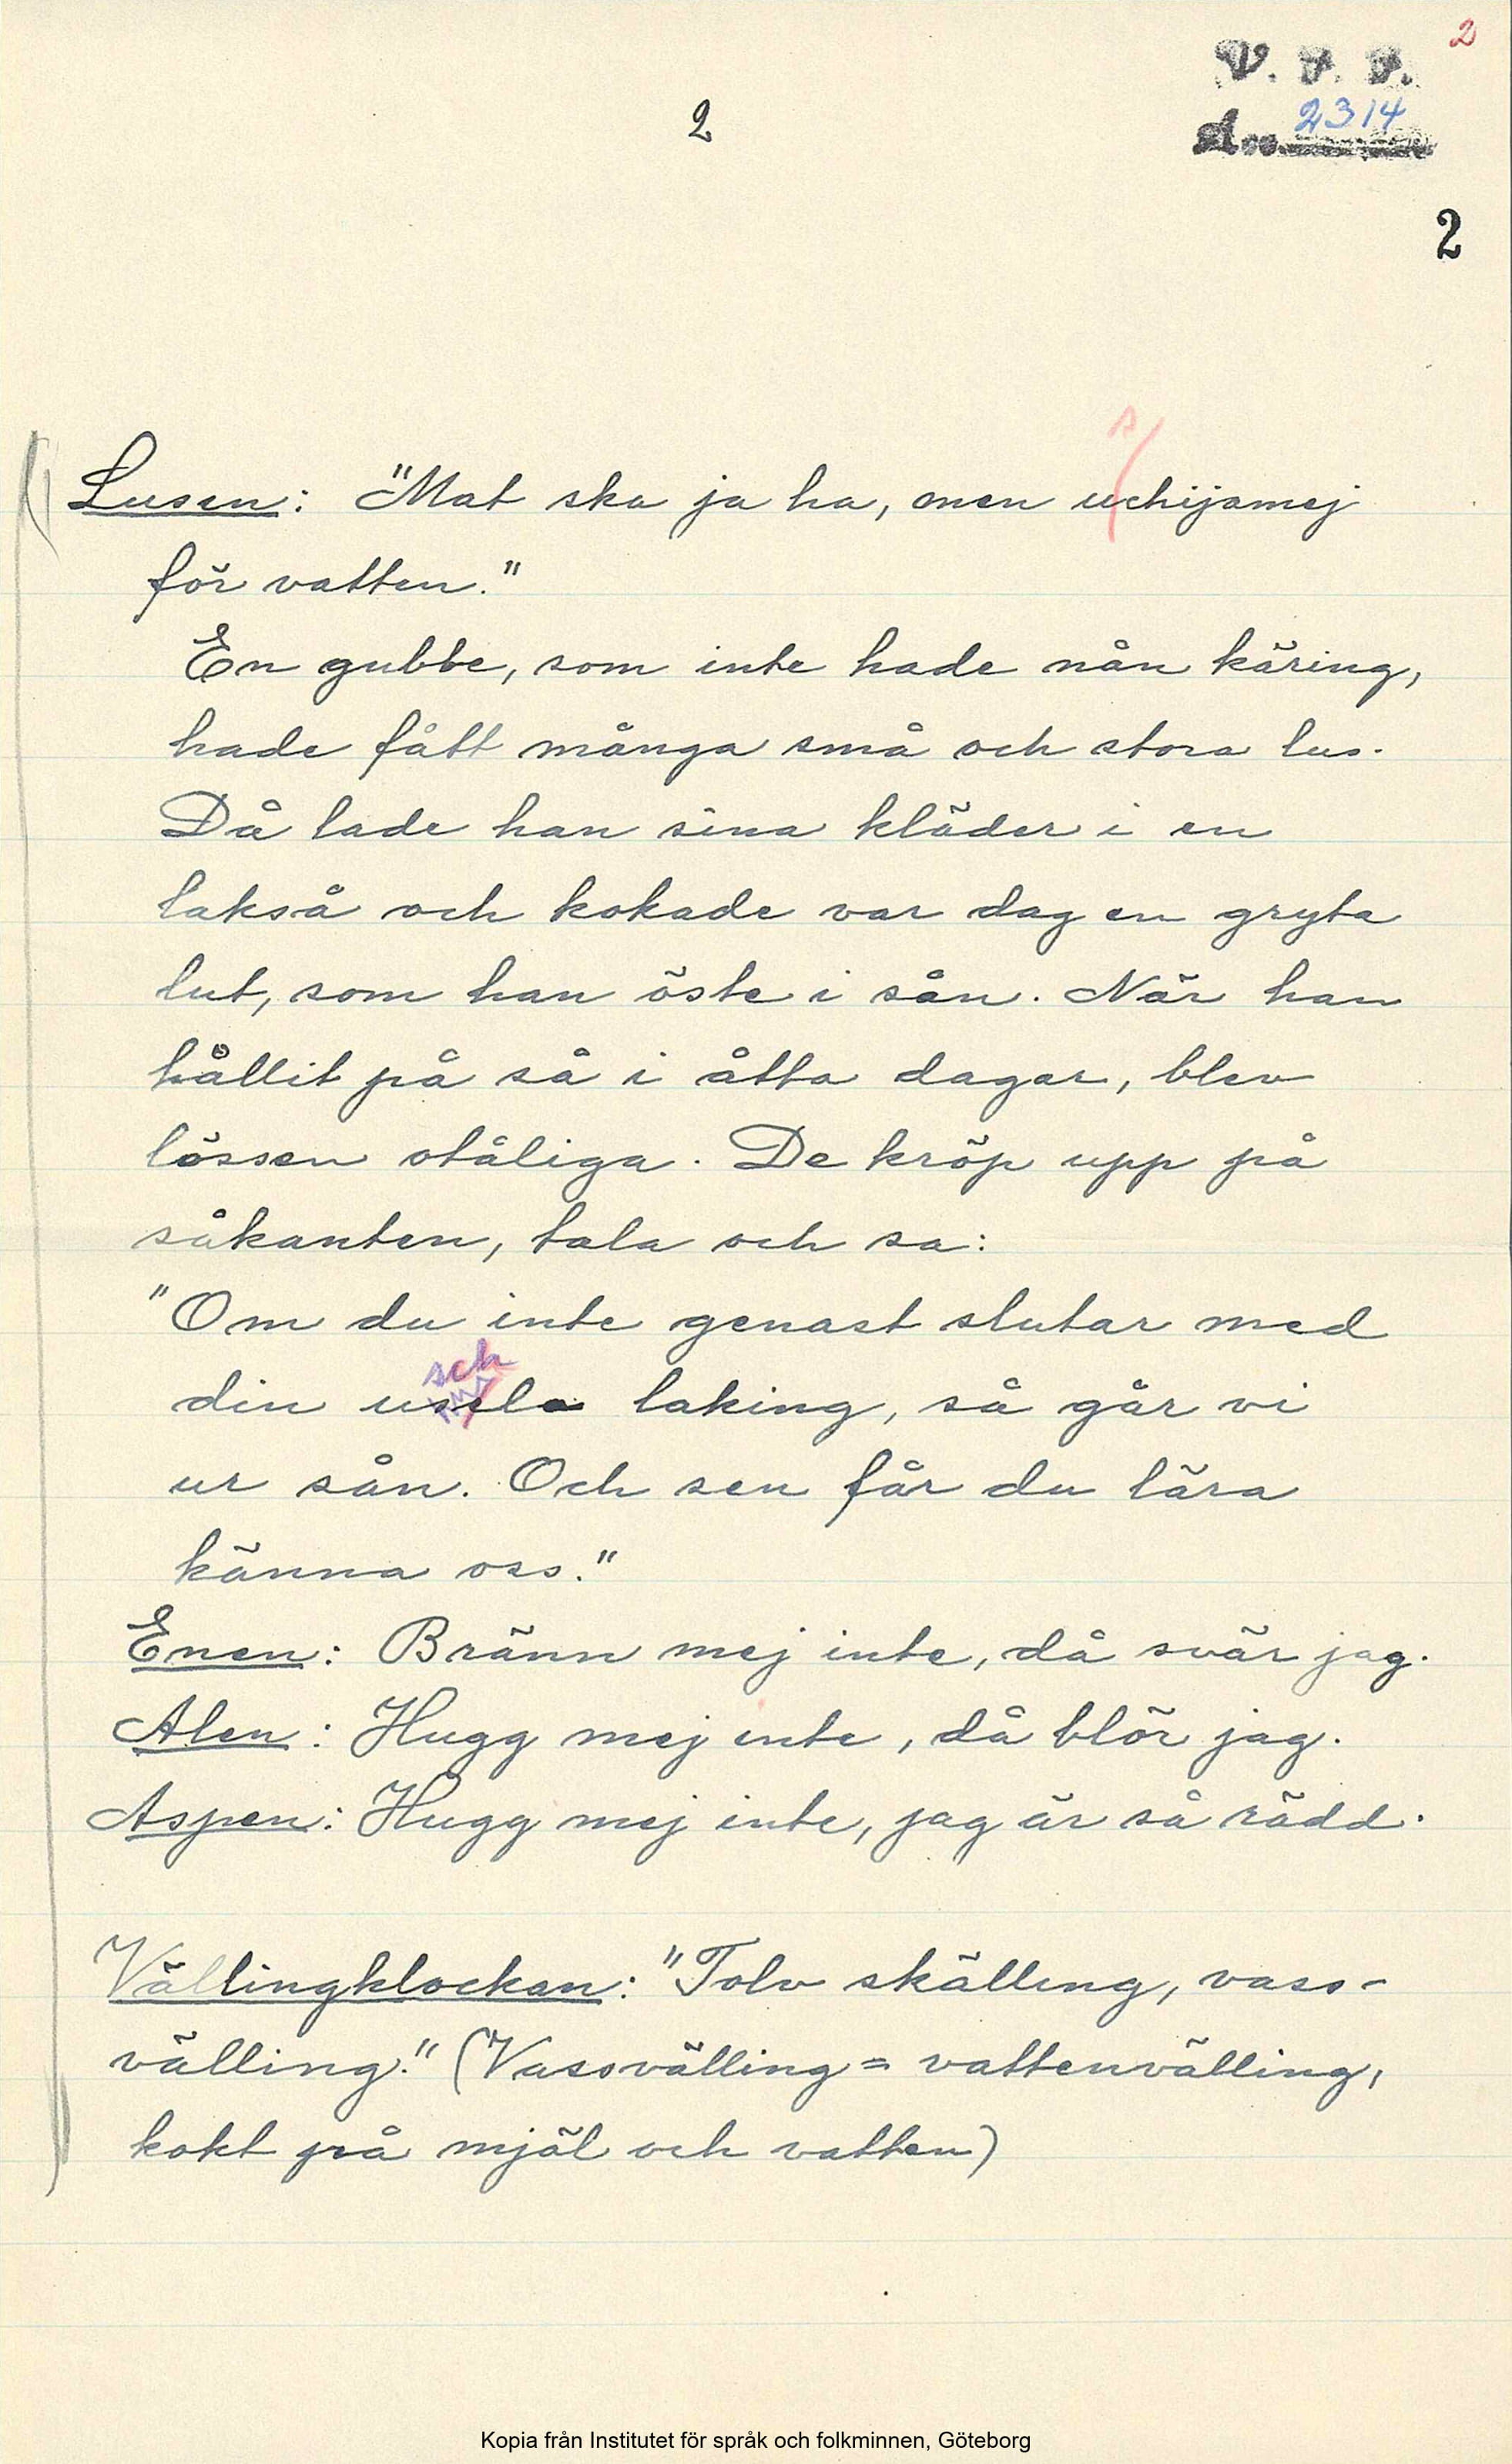 2
V. F. F.
2
Acc. 2314
2
s
Lusen: "Mat ska ja ha, men uchijamej
för vatten."
En gubbe, som inte hade nån käring,
hade fått många små och stora lus.
Då lade han sina kläder i en
lakså och kokade var dag en gryta
lut, som han öste i sån. När han
hållit på så i åtta dagar, blev
lössen otåliga. De kröp upp på
såkanten, tala och sa:
"Om du inte genast slutar med
sch
din usela laking, så går vi
ur sån. Och sen får du lära
känna oss."
Enen: Bränn mej inte, då svär jag.
Alen: Hugg mej inte, då blör jag.
Aspen: Hugg mej inte, jag är så rädd.
Vällingklockan: "Tolv skälling, vass-
välling." (Vassvälling = vattenvälling,
kokt på mjöl och vatten)
Kopia från Institutet för språk och folkminnen, Göteborg